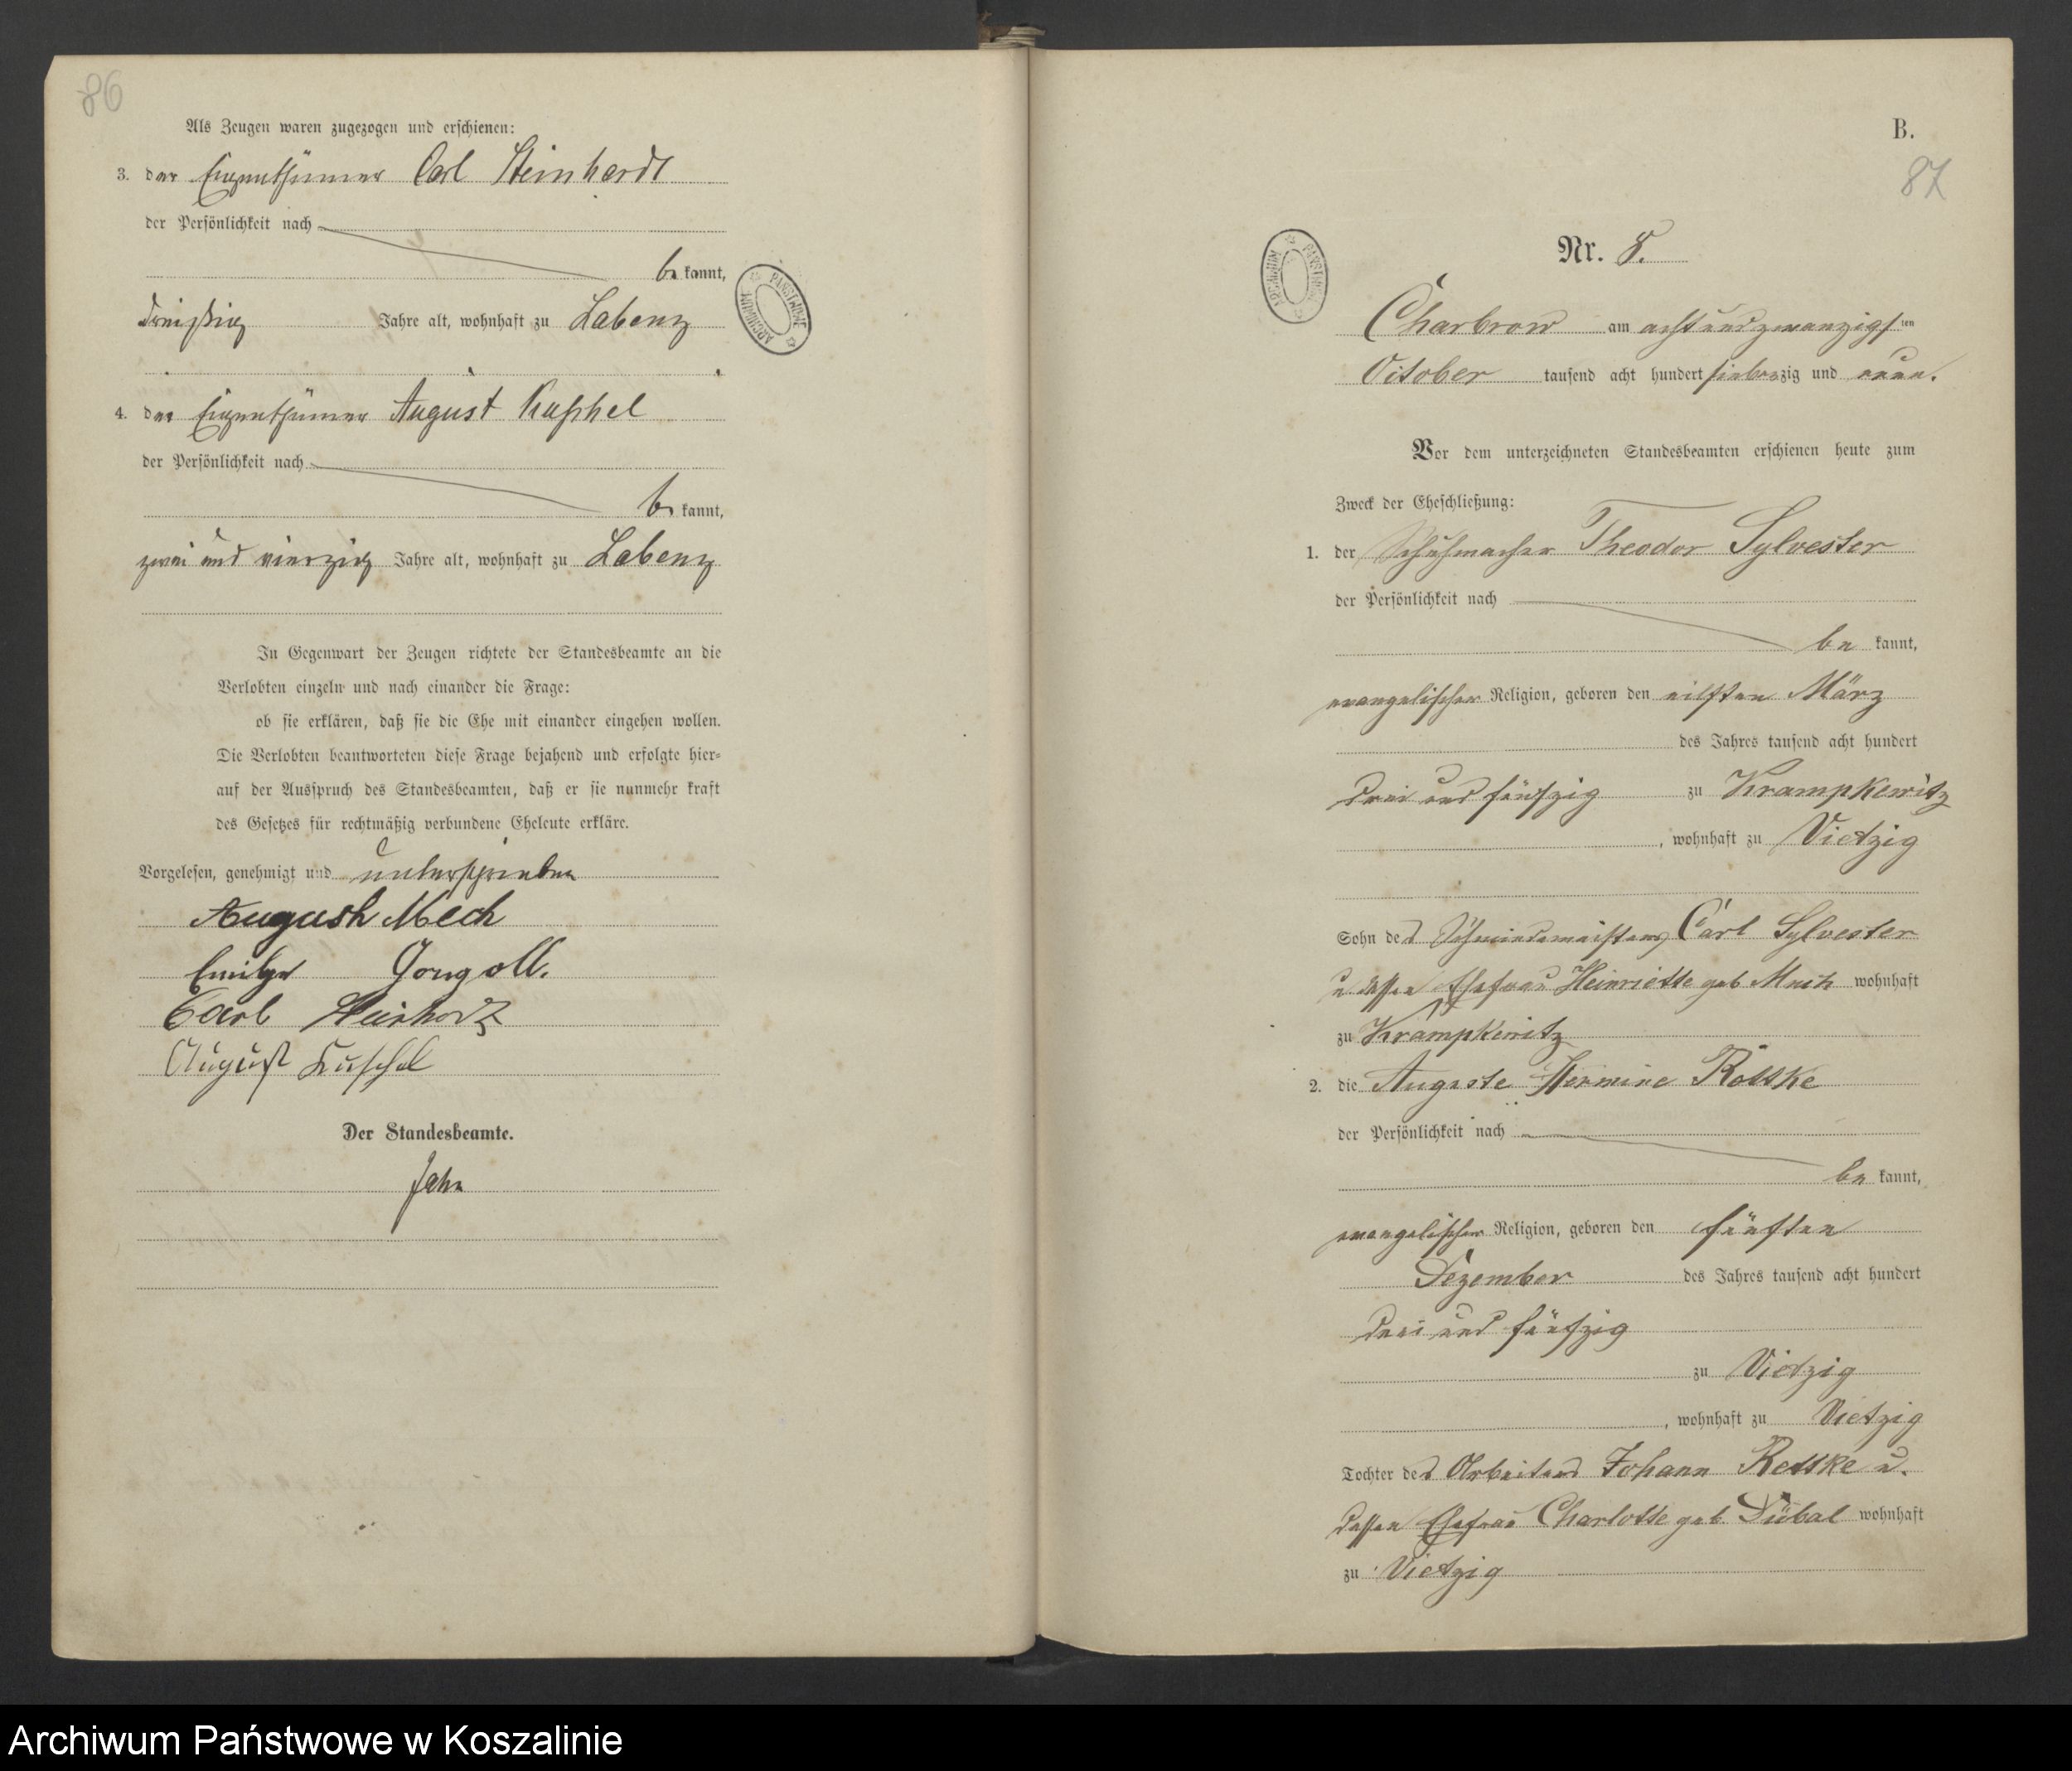 86
Als Zeugen waren zugezogen und erschienen:
3. der Eigenthümer Carl Steinhardt
der Persönlichkeit nach
be kannt,
dreißig Jahre alt, wohnhaft zu Labenz
4. der Eigenthümer August Kuschel
der Persönlichkeit nach
be kannt,
zwei und vierzig Jahre alt, wohnhaft zu Labenz
In Gegenwart der Zeugen richtete der Standesbeamte an die
Verlobten einzeln und nach einander die Frage:
ob sie erklären, daß sie die Ehe mit einander eingehen wollen.
Die Verlobten beantworteten diese Frage bejahend und erfolgte hier=
auf der Ausspruch des Standesbeamten, daß er sie nunmehr kraft
des Gesetzes für rechtmäßig verbundene Eheleute erkläre.
Vorgelesen, genehmigt und unterschrieben
August Mech
Gongoll.
Carl
August Kuschel
Der Standesbeamte.
Jahn
ARCHIWUM PAŃSTWOWE
B.
87
Nr. 8.
ARCHIWUM PAŃSTWOWE
Charbrow am achtundzwanzigsten
October tausend acht hundert siebenzig und neun.
Vor dem unterzeichneten Standesbeamten erschienen heute zum
Zweck der Eheschließung:
1. der Schuhmacher Theodor Sylvester
der Persönlichkeit nach
be kannt,
evangelischer Religion, geboren den eilften März
des Jahres tausend acht hundert
drei und fünfzig zu Krampkewitz
, wohnhaft zu Vietzig
Sohn des Schmiedemeisters Carl Sylvester
u dessen Ehefrau Heinriette geb wohnhaft
zu Krampkewitz
2. die Auguste Hermine
der Persönlichkeit nach
be kannt,
evangelischer Religion, geboren den fünften
Dezember des Jahres tausend acht hundert
drei und fünfzig
zu Vietzig
, wohnhaft zu Vietzig
Tochter des Arbeiters Johann Rettke u.
dessen Ehefrau Charlotte geb. Dübal wohnhaft
zu Vietzig
Archiwum Państwowe w Koszalinie